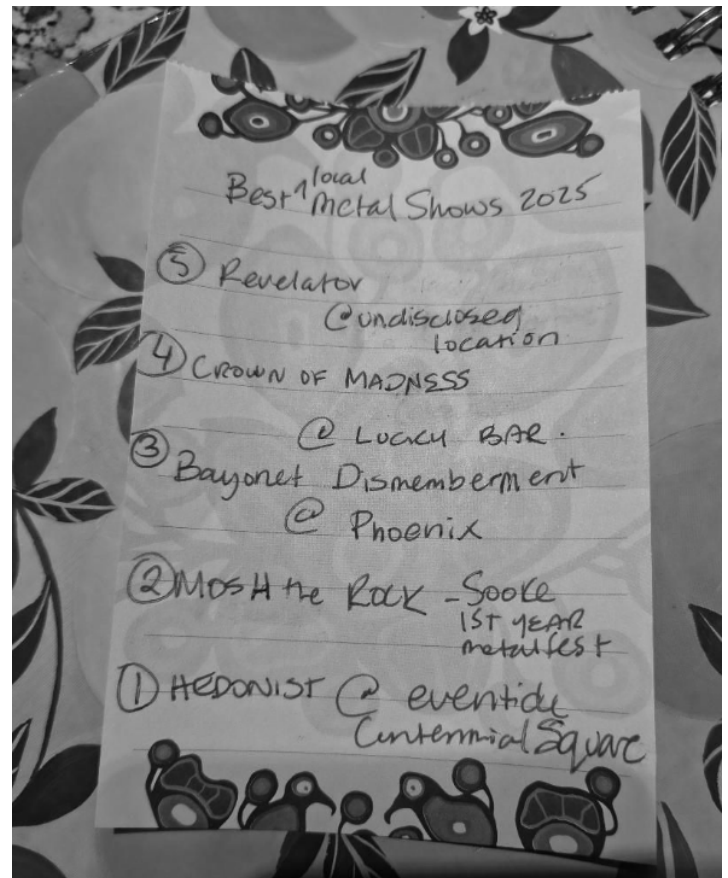 Best local Metal Shows 2025
⑤ Revelator
@undisclosed
location
④ CROWN OF MADNESS
@ LUCKY BAR.
③ Bayonet Dismemberment
@ Phoenix
② MOSH the ROCK - Sooke
1ST YEAR
metalfest
① HEDONIST @ eventide
Centennial Square